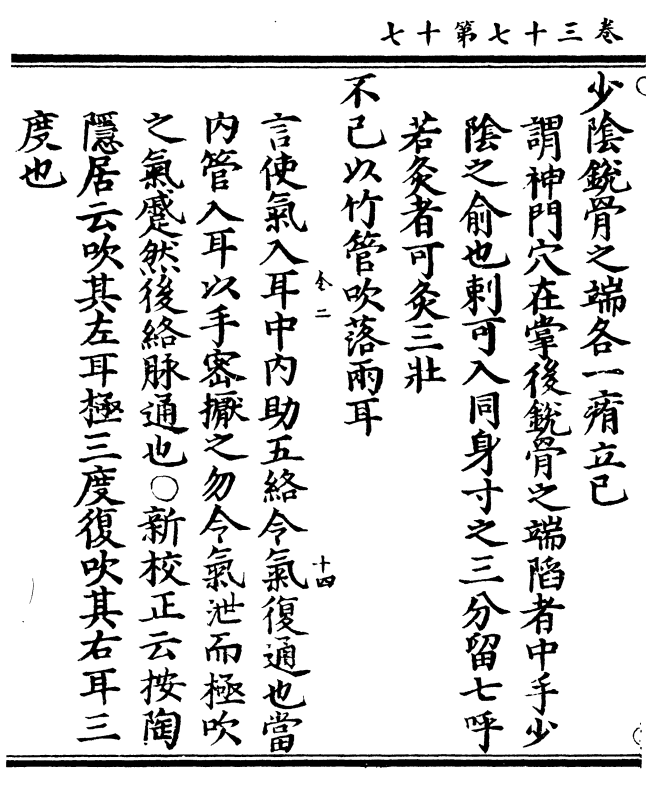 卷三十七第十七
少陰銳骨之端各一痏立已
謂神門穴在掌後銳骨之端陷者中手少
陰之俞也刺可入同身寸之三分留七呼
若灸者可灸三壯
不已以竹管吹落兩耳
全二
十四
言使氣入耳中內助五絡令氣復通也當
内管入耳以手密擫之勿令氣泄而極吹
之氣蹙然後絡脉通也〇新校正云按陶
隱居云吹其左耳極三度復吹其右耳三
度也